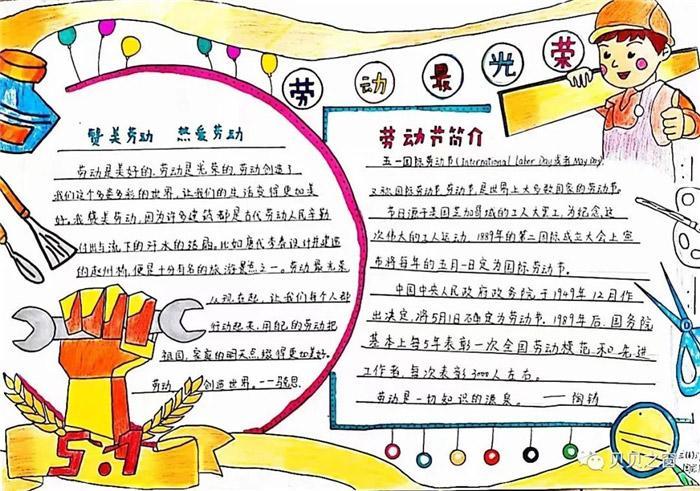 劳动最光荣
赞美劳动 热爱劳动
劳动是美好的,劳动是光荣的,劳动创造了
我们这个多姿多彩的世界,让我们的生活变得更加美
好。我赞美劳动,因为许多建筑都是古代劳动人民辛勤
付出与流下的汗水的结晶。比如隋代李春设计并建造
的赵州桥,便是十分有名的旅游景点之一。劳动最光荣
从现在起,让我们每个人都
行动起来,用自己的劳动把
祖国,家庭的明天点缀得更加美好。
劳动 创造世界。——马克思
5.1
劳动节简介
五一国际劳动节(International Labor Day或者May Day)
又称国际劳动节,劳动节,是世界上大多数国家的劳动节。
节日源于美国芝加哥城的工人大罢工,为纪念这
次伟大的工人运动,1889年的第二国际成立大会上宣
布将每年的五月一日定为国际劳动节。
中国中央人民政府政务院于1949年12月作
出决定,将5月1日确定为劳动节。1989年后,国务院
基本上每5年表彰一次全国劳动模范和先进
工作者,每次表彰3000人左右。
劳动是一切知识的源泉。 ——陶铸
贝贝之窗